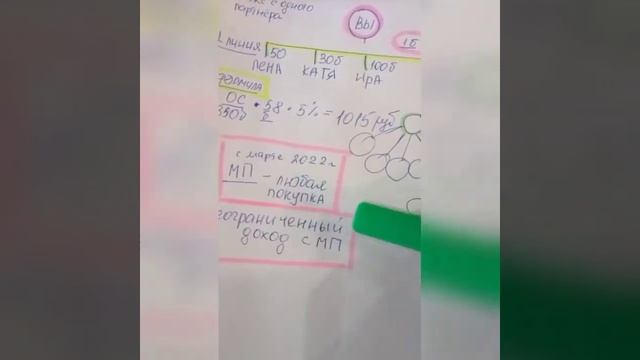 с одного
партнёра
ВЫ
1Б
ЛИНИЯ 50 30б 100б
ЛЕНА КАТЯ ИРА
ФОРМУЛА
ОС · 58 · 5% = 1015 руб
350б Б
с марта 2022 г
МП - любая
покупка
ограниченный
доход с МП